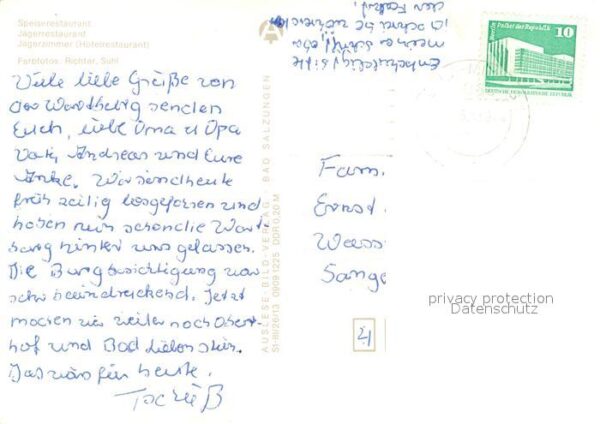 Speiserestaurant
Jägerrestaurant
Jägerzimmer (Hotelrestaurant)
Farbfotos: Richter, Suhl
Viele liebe Grüße von
der Wartburg senden
Euch, liebe Oma u Opa
Vati, Andreas und Eure
Anke. Wir sind heute
früh zeitig losgefahren und
haben nun schon die Wart-
burg hinter uns gelassen.
Die Burgbesichtigung war
sehr beeindruckend. Jetzt
wollen wir weiter nach Oberhof
und Bad Liebenstein.
Das wärs für heute.
Tschüß
Entschuldigt bitte
meine Schrift, aber
ich schreibe während
der Fahrt.
AUSLESE-BILD-VERLAG · BAD SALZUNGEN
St-III/26/13 09091225 DDR 0,20 M
Berlin, Palast der Republik
10
DEUTSCHE DEMOKRATISCHE REPUBLIK
Fam.
Ernst
Wass
Sange
privacy protection
Datenschutz